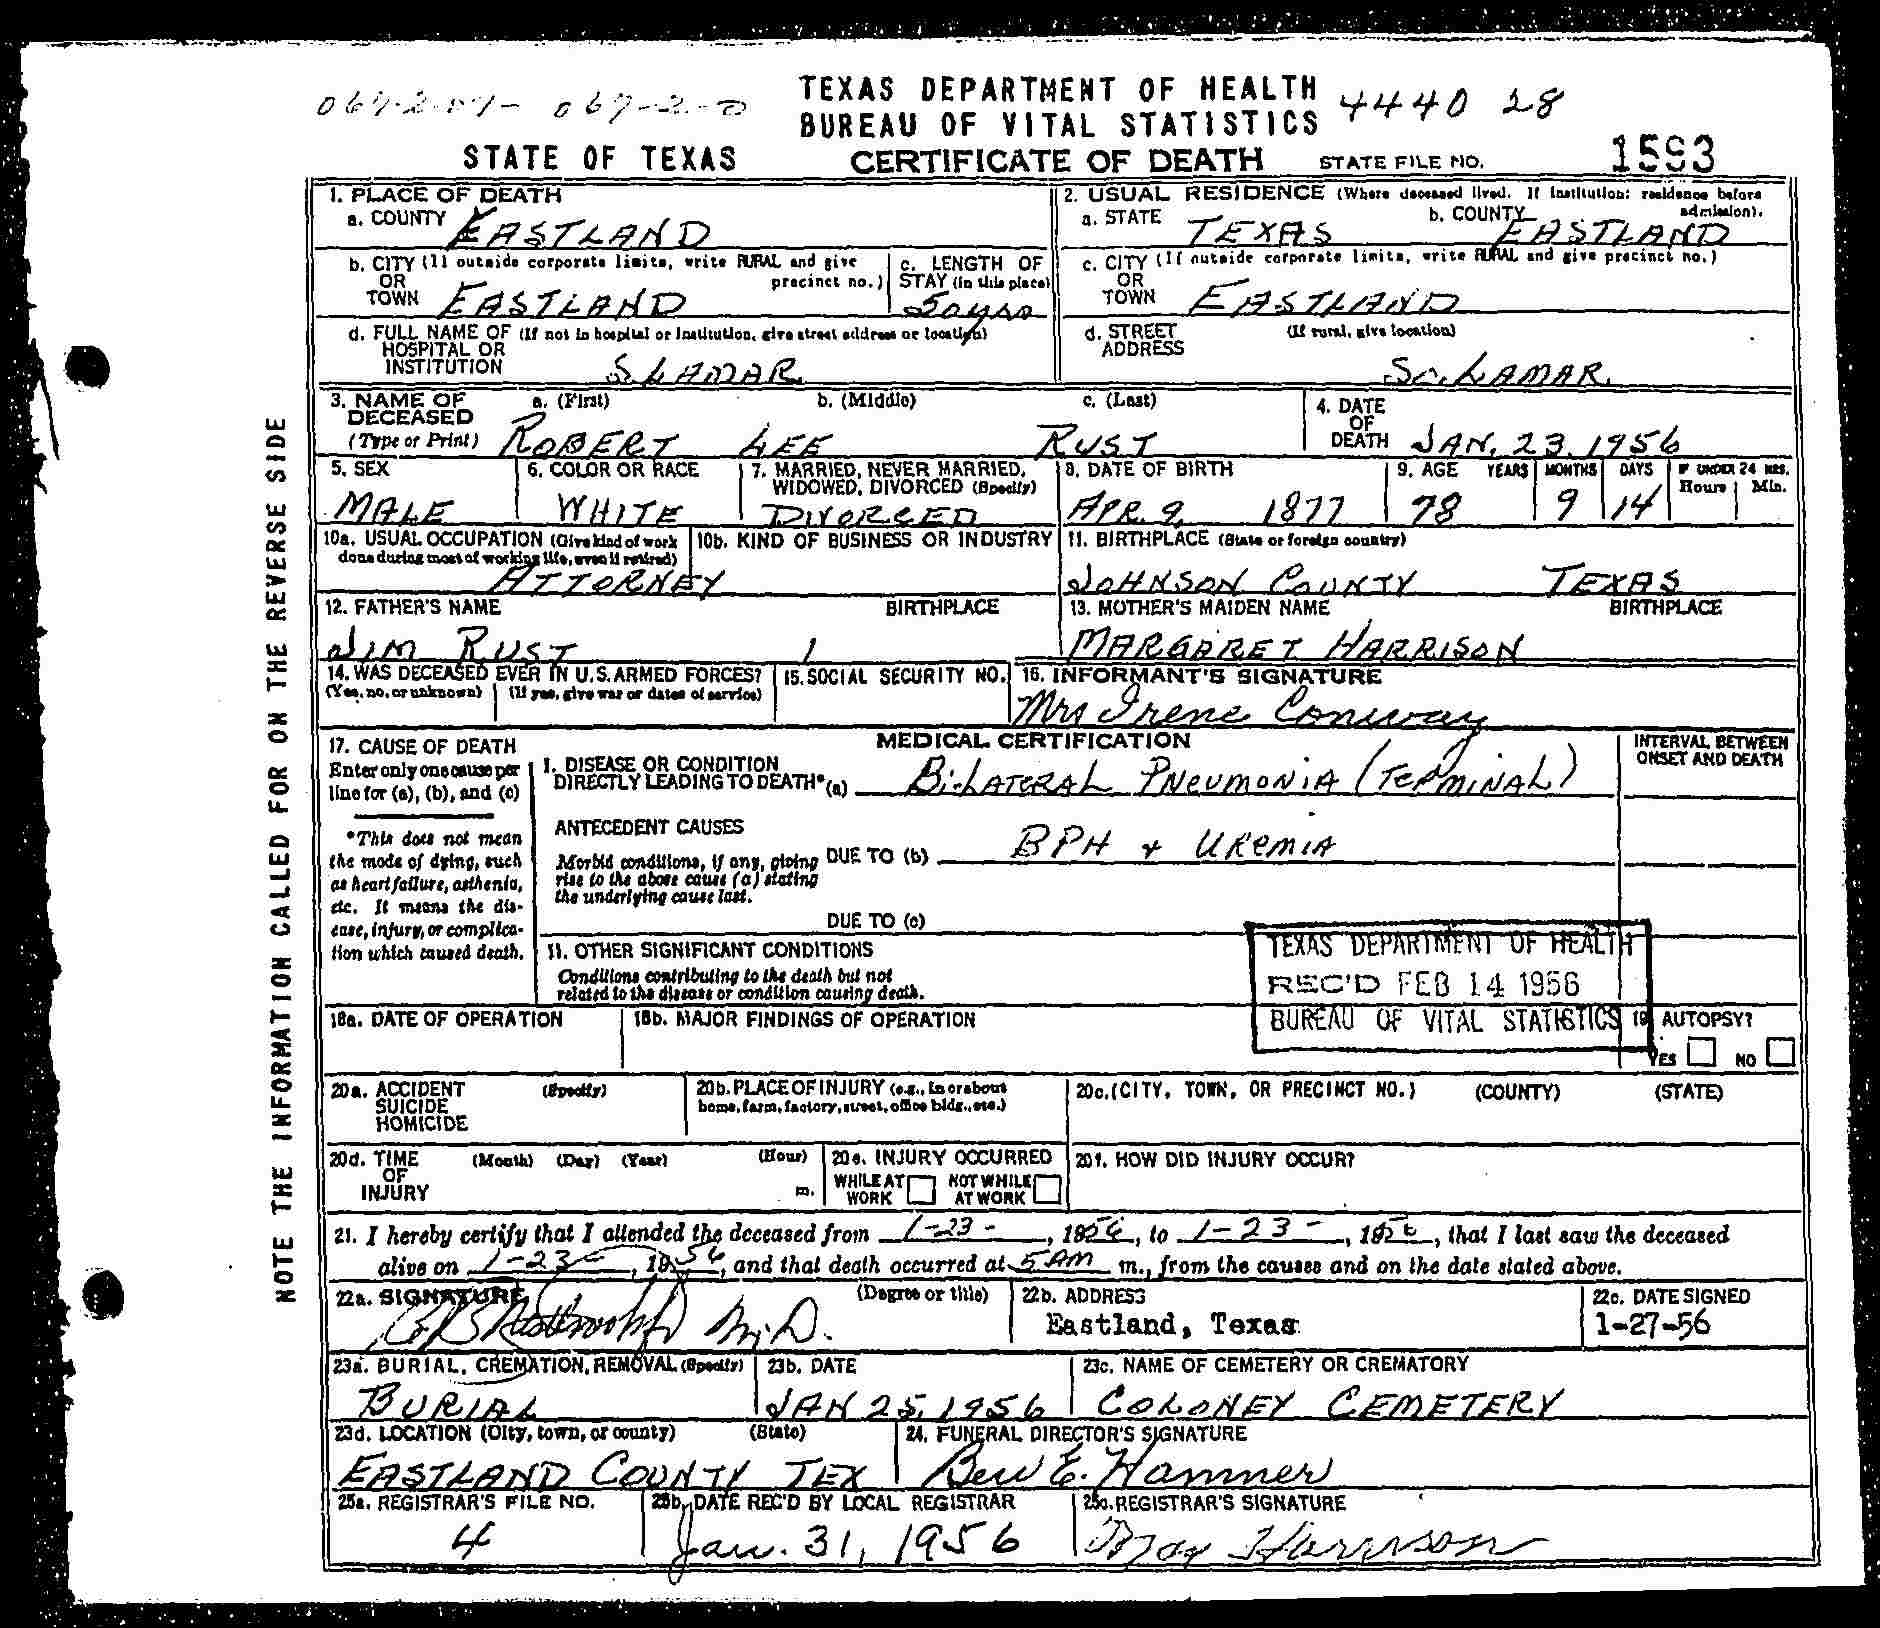 067-2-07- 067-2-0
TEXAS DEPARTMENT OF HEALTH
BUREAU OF VITAL STATISTICS
4440 28
STATE OF TEXAS
CERTIFICATE OF DEATH
STATE FILE NO. 1593
NOTE THE INFORMATION CALLED FOR ON THE REVERSE SIDE
1. PLACE OF DEATH
a. COUNTY EASTLAND
2. USUAL RESIDENCE (Where deceased lived. If institution: residence before admission).
a. STATE TEXAS b. COUNTY EASTLAND
b. CITY (If outside corporate limits, write RURAL and give precinct no.)
OR
TOWN EASTLAND
c. LENGTH OF
STAY (in this place)
50 yrs
c. CITY (If outside corporate limits, write RURAL and give precinct no.)
OR
TOWN EASTLAND
d. FULL NAME OF (If not in hospital or institution, give street address or location)
HOSPITAL OR
INSTITUTION S. LAMAR
d. STREET (If rural, give location)
ADDRESS So. LAMAR.
3. NAME OF a. (First) b. (Middle) c. (Last)
DECEASED
(Type or Print) ROBERT LEE RUST
4. DATE
OF
DEATH JAN. 23. 1956
5. SEX
MALE
6. COLOR OR RACE
WHITE
7. MARRIED, NEVER MARRIED,
WIDOWED, DIVORCED (Specify)
DIVORCED
8. DATE OF BIRTH
APR. 9, 1877
9. AGE YEARS MONTHS DAYS IF UNDER 24 HRS.
Hours Min.
78 9 14
10a. USUAL OCCUPATION (Give kind of work
done during most of working life, even if retired)
ATTORNEY
10b. KIND OF BUSINESS OR INDUSTRY
11. BIRTHPLACE (State or foreign country)
JOHNSON COUNTY TEXAS
12. FATHER'S NAME BIRTHPLACE
JIM RUST
13. MOTHER'S MAIDEN NAME BIRTHPLACE
MARGARET HARRISON
14. WAS DECEASED EVER IN U.S. ARMED FORCES?
(Yes, no, or unknown) (If yes, give war or dates of service)
15. SOCIAL SECURITY NO.
16. INFORMANT'S SIGNATURE
Mrs Irene Conway
17. CAUSE OF DEATH
Enter only one cause per
line for (a), (b), and (c)
*This does not mean
the mode of dying, such
as heart failure, asthenia,
etc. It means the dis-
ease, injury, or complica-
tion which caused death.
MEDICAL CERTIFICATION
INTERVAL BETWEEN
ONSET AND DEATH
I. DISEASE OR CONDITION
DIRECTLY LEADING TO DEATH* (a) Bi-LATERAL PNEUMONIA (TERMINAL)
ANTECEDENT CAUSES
Morbid conditions, if any, giving
rise to the above cause (a) stating
the underlying cause last.
DUE TO (b) BPH + UREMIA
DUE TO (c)
II. OTHER SIGNIFICANT CONDITIONS
Conditions contributing to the death but not
related to the disease or condition causing death.
TEXAS DEPARTMENT OF HEALTH
REC'D FEB 14 1956
BUREAU OF VITAL STATISTICS
18a. DATE OF OPERATION
18b. MAJOR FINDINGS OF OPERATION
19. AUTOPSY?
YES NO
20a. ACCIDENT (Specify)
SUICIDE
HOMICIDE
20b. PLACE OF INJURY (e.g., in or about
home, farm, factory, street, office bldg., etc.)
20c. (CITY, TOWN, OR PRECINCT NO.) (COUNTY) (STATE)
20d. TIME (Month) (Day) (Year) (Hour)
OF
INJURY m.
20e. INJURY OCCURRED
WHILE AT WORK NOT WHILE AT WORK
20f. HOW DID INJURY OCCUR?
21. I hereby certify that I attended the deceased from 1-23-, 1956, to 1-23-, 1956, that I last saw the deceased
alive on 1-23-, 1956, and that death occurred at 5 AM m., from the causes and on the date stated above.
22a. SIGNATURE (Degree or title)
M.D.
22b. ADDRESS
Eastland, Texas
22c. DATE SIGNED
1-27-56
23a. BURIAL, CREMATION, REMOVAL (Specify)
BURIAL
23b. DATE
JAN 25, 1956
23c. NAME OF CEMETERY OR CREMATORY
COLONEY CEMETERY
23d. LOCATION (City, town, or county) (State)
EASTLAND COUNTY TEX
24. FUNERAL DIRECTOR'S SIGNATURE
Ben E. Hamner
25a. REGISTRAR'S FILE NO.
4
25b. DATE REC'D BY LOCAL REGISTRAR
Jan. 31, 1956
25c. REGISTRAR'S SIGNATURE
Harrison